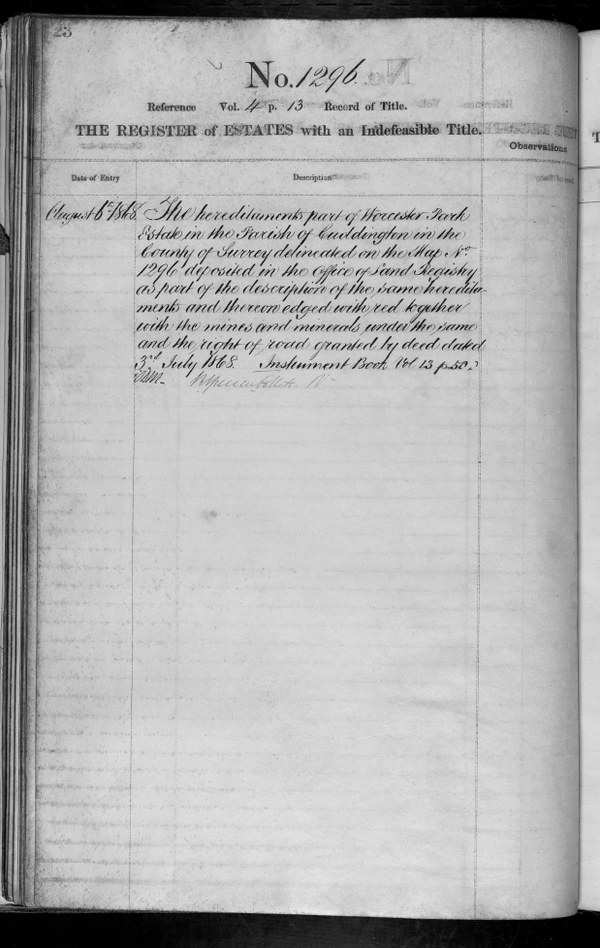 23
No. 1296.
Reference Vol. 4 p. 13 Record of Title.
THE REGISTER of ESTATES with an Indefeasible Title.
Observations
Date of Entry
Description
August 6th 1868. The hereditaments part of Worcester Park
Estate in the Parish of Cuddington in the
County of Surrey delineated on the Map No.
1296 deposited in the Office of Land Registry
as part of the description of the same heredita-
ments and thereon edged with red together
with the mines and minerals under the same
and the right of road granted by deed dated
3rd July 1868. Instrument Book Vol 13 p. 50.